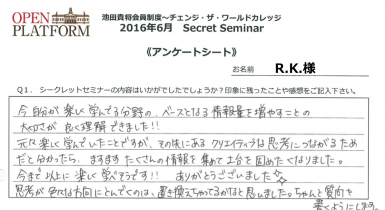 OPEN
PLATFORM
池田貴将会員制度～チェンジ・ザ・ワールドカレッジ
2016年6月 Secret Seminar
《アンケートシート》
お名前 R.K.様
Q1. シークレットセミナーの内容はいかがでしたでしょうか?印象に残ったことや感想をご記入下さい。
今自分が楽しく学んでる分野の、ベースとなる情報量を増やすことの
大切さが良く理解できました!!
元々楽しく学んでいたことですが、その先にあるクリエイティブな思考につながるため
だと分かったら、ますますたくさんの情報を集めて土台を固めたくなりました。
今まで以上に楽しく学べそうです! ありがとうございました
思考が色々な方向にとんでくのは、置き換えちゃってるかなと思いました。ちゃんと質問を
書くようにします。